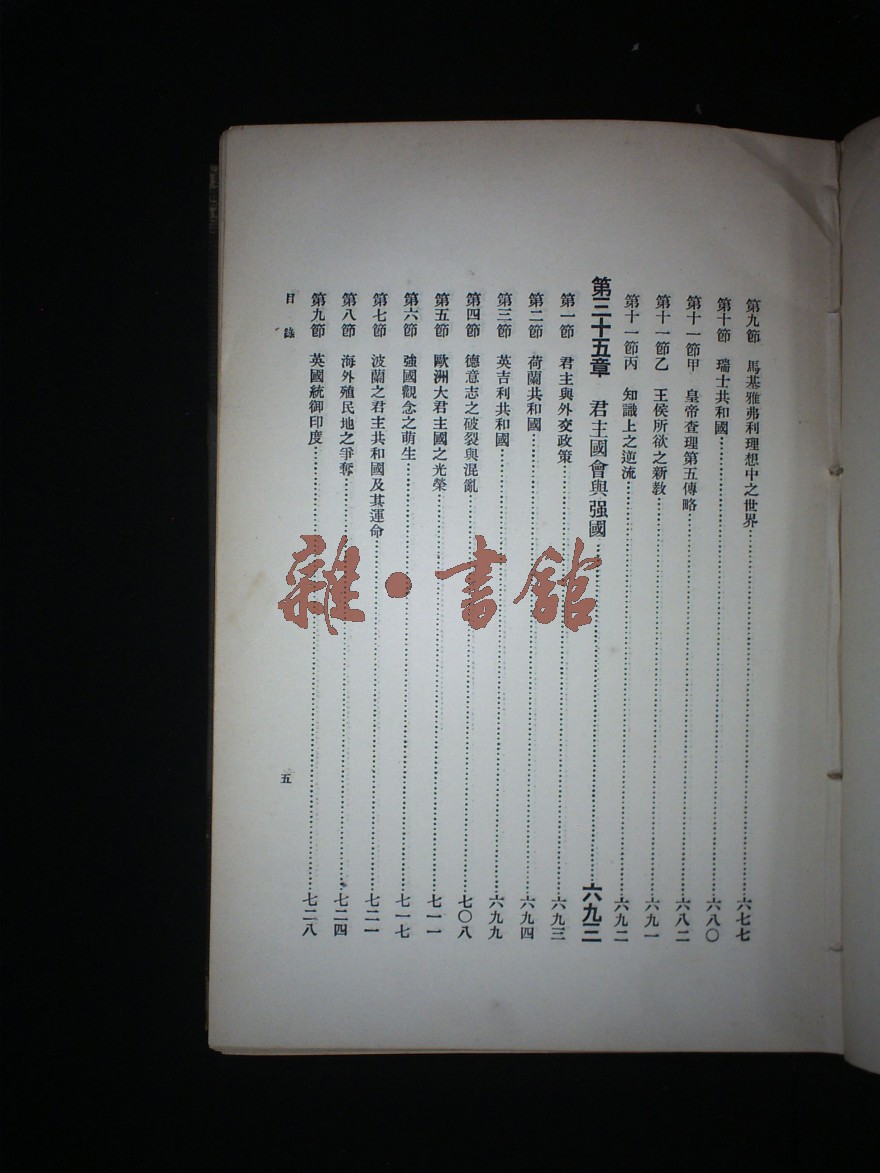 第九節 馬基雅弗利理想中之世界……六七七
第十節 瑞士共和國……六八〇
第十一節甲 皇帝查理第五傳略……六八二
第十一節乙 王侯所欲之新教……六九一
第十一節丙 知識上之逆流……六九二
第三十五章 君主國會與强國……六九三
第一節 君主與外交政策……六九三
第二節 荷蘭共和國……六九四
第三節 英吉利共和國……六九九
第四節 德意志之破裂與混亂……七〇八
第五節 歐洲大君主國之光榮……七一一
第六節 強國觀念之萌生……七一七
第七節 波蘭之君主共和國及其運命……七二一
第八節 海外殖民地之爭奪……七二四
第九節 英國統御印度……七二八
目錄 五
雜·書館